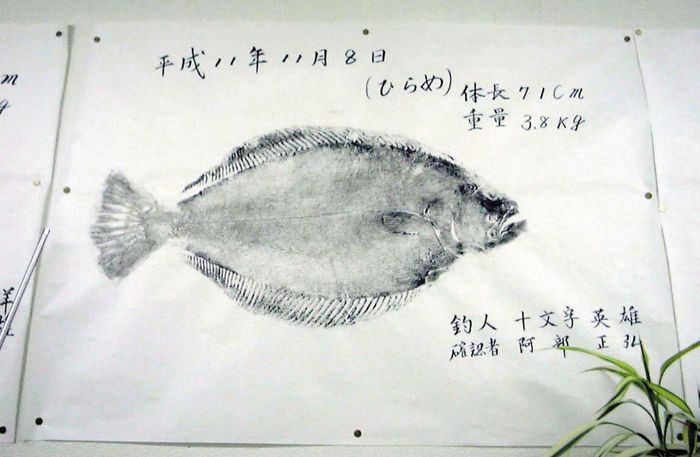 平成11年11月8日
(ひらめ)
体長 71Cm
重量 3.8Kg
釣人 十文字 英雄
確認者 阿部 正弘
m
g
洋